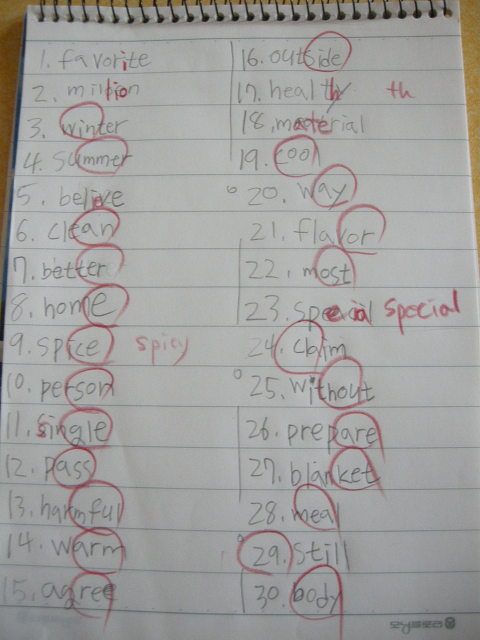 1. favorite
2. million
3. winter
4. summer
5. believe
6. clean
7. better
8. home
9. spice spicy
10. person
11. single
12. pass
13. harmful
14. warm
15. agree
16. outside
17. health th
18. material
19. cool
20. way
21. flavor
22. most
23. special special
24. claim
25. without
26. prepare
27. blanket
28. meal
29. still
30. body
모닝글로리